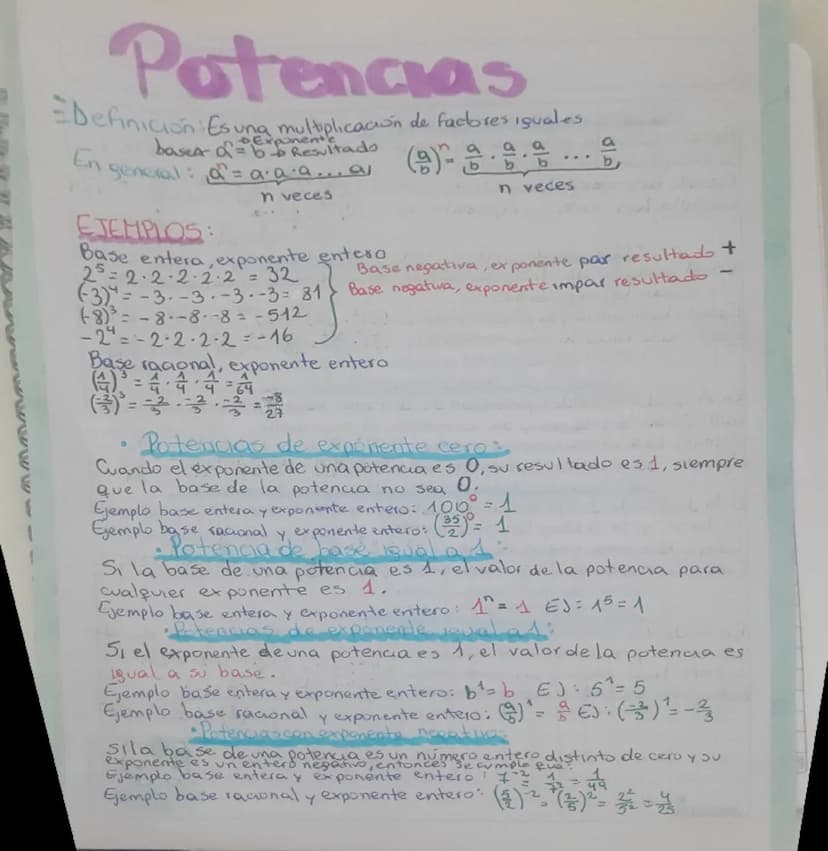 Potencias
Definición: Es una multiplicación de factores iguales
base← aⁿ = b → Resultado
→ Exponente
En general: aⁿ = a·a·a...a
n veces
(a/b)ⁿ = a/b · a/b · a/b ... a/b
n veces
EJEMPLOS:
Base entera, exponente entero
2⁵ = 2·2·2·2·2 = 32
(-3)⁴ = -3·-3·-3·-3 = 81
(-8)³ = -8·-8·-8 = -512
-2⁴ = -2·2·2·2 = -16
Base negativa, exponente par resultado +
Base negativa, exponente impar resultado -
Base racional, exponente entero
(1/4)³ = 1/4 · 1/4 · 1/4 = 1/64
(-2/3)³ = -2/3 · -2/3 · -2/3 = -8/27
• Potencias de exponente cero:
Cuando el exponente de una potencia es 0, su resultado es 1, siempre
que la base de la potencia no sea 0.
Ejemplo base entera y exponente entero: 100⁰ = 1
Ejemplo base racional y exponente entero: (35/2)⁰ = 1
• Potencia de base igual a 1:
Si la base de una potencia es 1, el valor de la potencia para
cualquier exponente es 1.
Ejemplo base entera y exponente entero: 1ⁿ = 1 EJ: 1⁵ = 1
• Potencias de exponente igual a 1:
Si el exponente de una potencia es 1, el valor de la potencia es
igual a su base.
Ejemplo base entera y exponente entero: b¹ = b EJ: 5¹ = 5
Ejemplo base racional y exponente entero: (a/b)¹ = a/b EJ: (-2/3)¹ = -2/3
• Potencias con exponente negativo:
Si la base de una potencia es un número entero distinto de cero y su
exponente es un entero negativo, entonces se cumple que:
Ejemplo base entera y exponente entero: 7⁻² = 1/7² = 1/49
Ejemplo base racional y exponente entero: (5/2)⁻² = (2/5)² = 2²/5² = 4/25